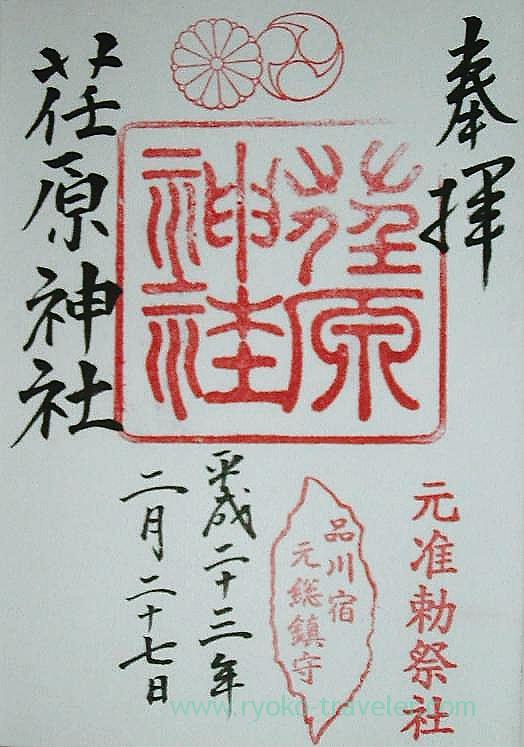 奉拝
荏原神社
荏原神社
元准勅祭社
品川宿
元総鎮守
平成二十三年
二月二十七日
www.ryoko-traveler.com